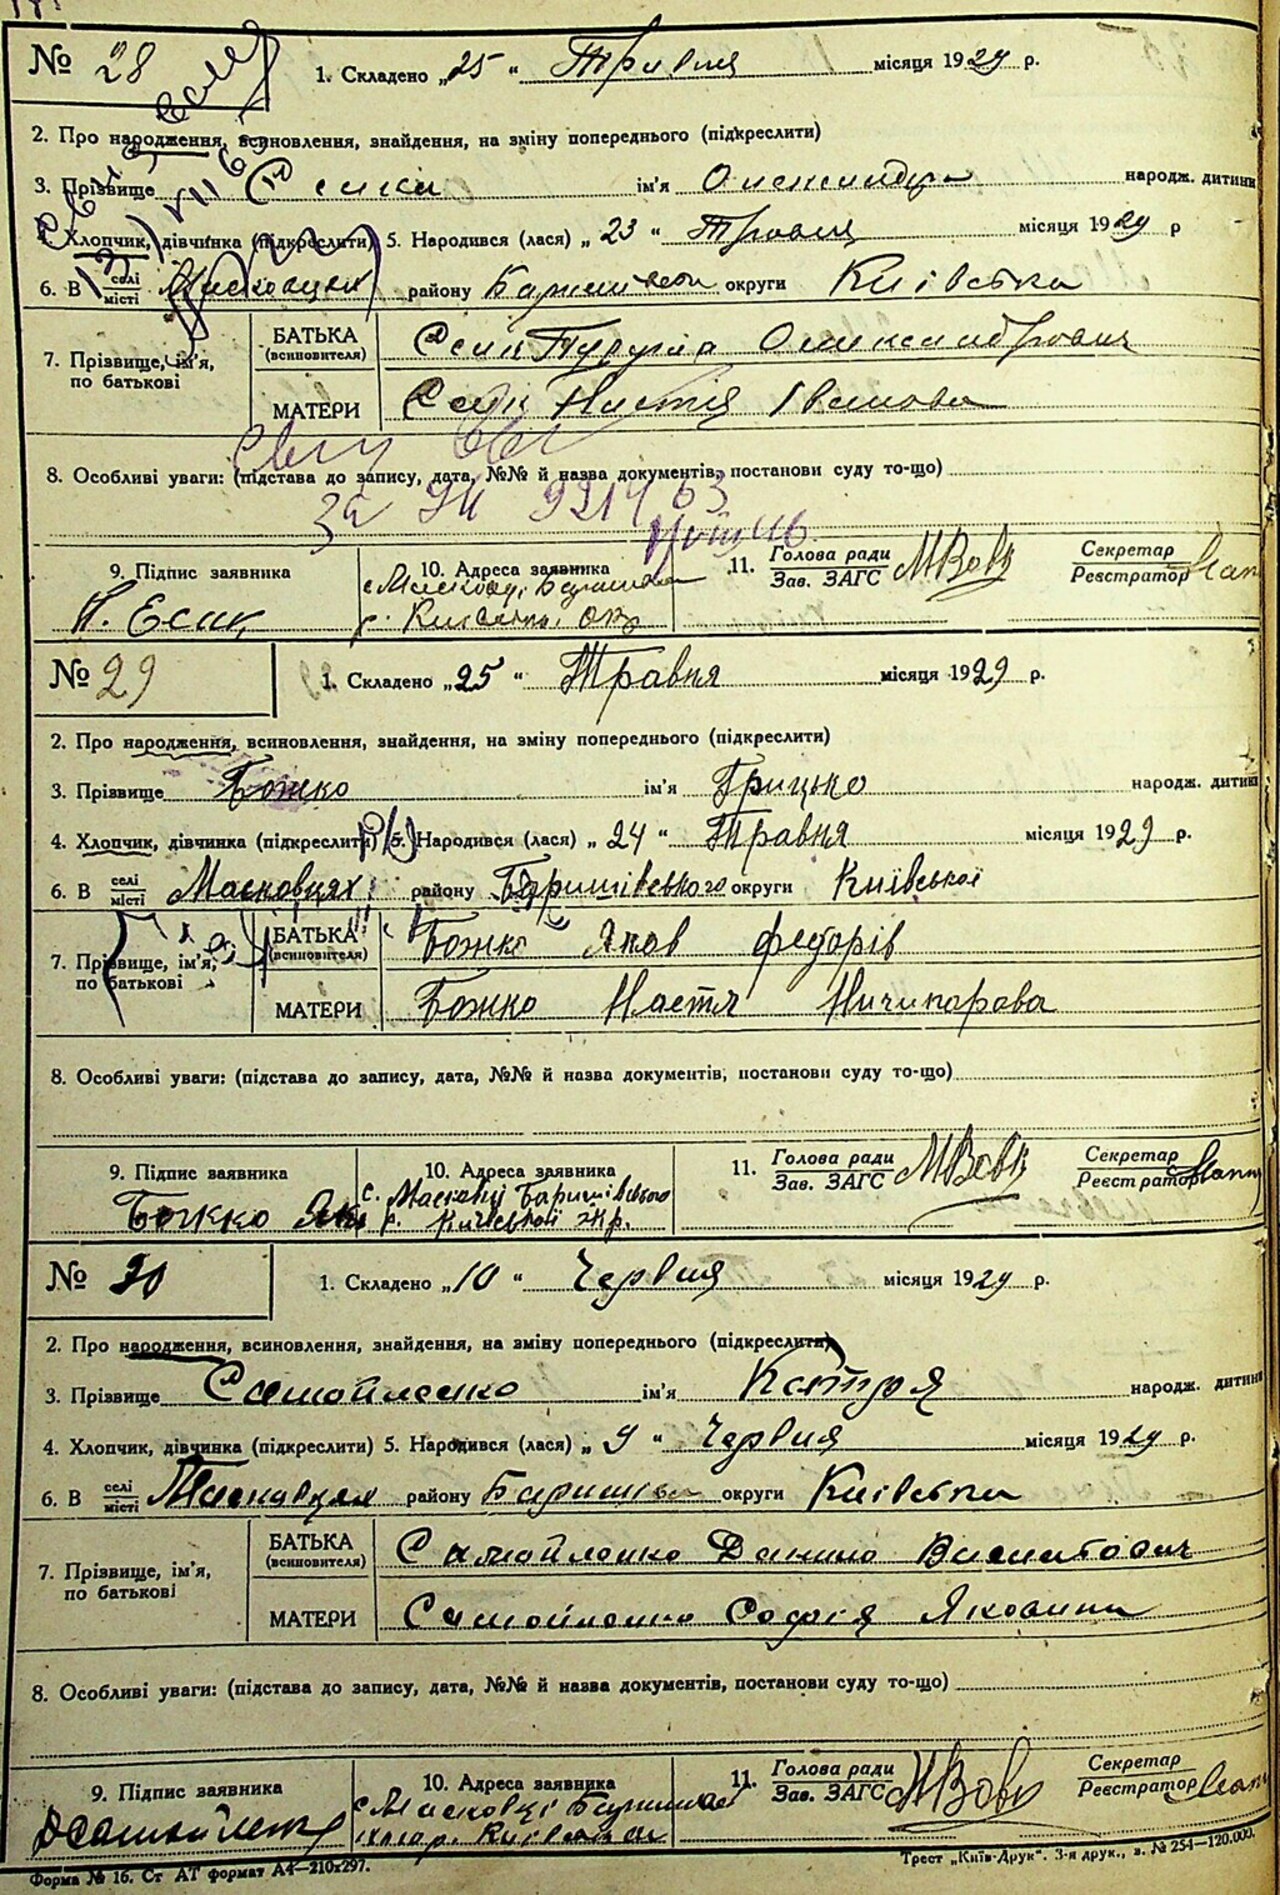 № 28
1. Складено „25“ Травня місяця 1929 р.
2. Про народження, всиновлення, знайдення, на зміну попереднього (підкреслити)
3. Прізвище ім'я Олександр народж. дитини
4. Хлопчик, дівчинка (підкреслити) 5. Народився (лася) „23“ Травня місяця 1929 р
6. В селі місті Масковцях району Баришівсько округи Київська
7. Прізвище, ім'я, по батькові
БАТЬКА (всиновителя) Олександрович
МАТЕРИ Есик Настія Іванова
8. Особливі уваги: (підстава до запису, дата, №№ й назва документів, постанови суду то-що)
9. Підпис заявника
Есик
10. Адреса заявника
с. Масковці Баришівськ
р. Київська окр
11. Голова ради Зав. ЗАГС МВовк
Секретар Реєстратор
№ 29
1. Складено „25“ Травня місяця 1929 р.
2. Про народження, всиновлення, знайдення, на зміну попереднього (підкреслити)
3. Прізвище Божко ім'я Грицько народж. дитини
4. Хлопчик, дівчинка (підкреслити) 5. Народився (лася) „24“ Травня місяця 1929 р.
6. В селі місті Масковцях району Баришівського округи Київської
7. Прізвище, ім'я, по батькові
БАТЬКА (всиновителя) Божко Яков Федорів
МАТЕРИ Божко Настя Ничипорова
8. Особливі уваги: (підстава до запису, дата, №№ й назва документів, постанови суду то-що)
9. Підпис заявника
Божко Як
10. Адреса заявника
с. Масковці Баришівського
р. Київської окр.
11. Голова ради Зав. ЗАГС МВовк
Секретар Реєстратор
№ 30
1. Складено „10“ Червня місяця 1929 р.
2. Про народження, всиновлення, знайдення, на зміну попереднього (підкреслити)
3. Прізвище Самойленко ім'я Катря народж. дитини
4. Хлопчик, дівчинка (підкреслити) 5. Народився (лася) „9“ Червня місяця 1929 р.
6. В селі місті Масковцях району Баришівсько округи Київська
7. Прізвище, ім'я, по батькові
БАТЬКА (всиновителя) Самойленко Данило
МАТЕРИ Самойленко Софія Яковина
8. Особливі уваги: (підстава до запису, дата, №№ й назва документів, постанови суду то-що)
9. Підпис заявника
10. Адреса заявника
с Масковці Баришівськ
Київська
11. Голова ради Зав. ЗАГС МВовк
Секретар Реєстратор
Форма № 16. Ст АТ формат А4—210х297.
Трест „Київ-Друк“. 3-я друк., в. № 254—120.000.